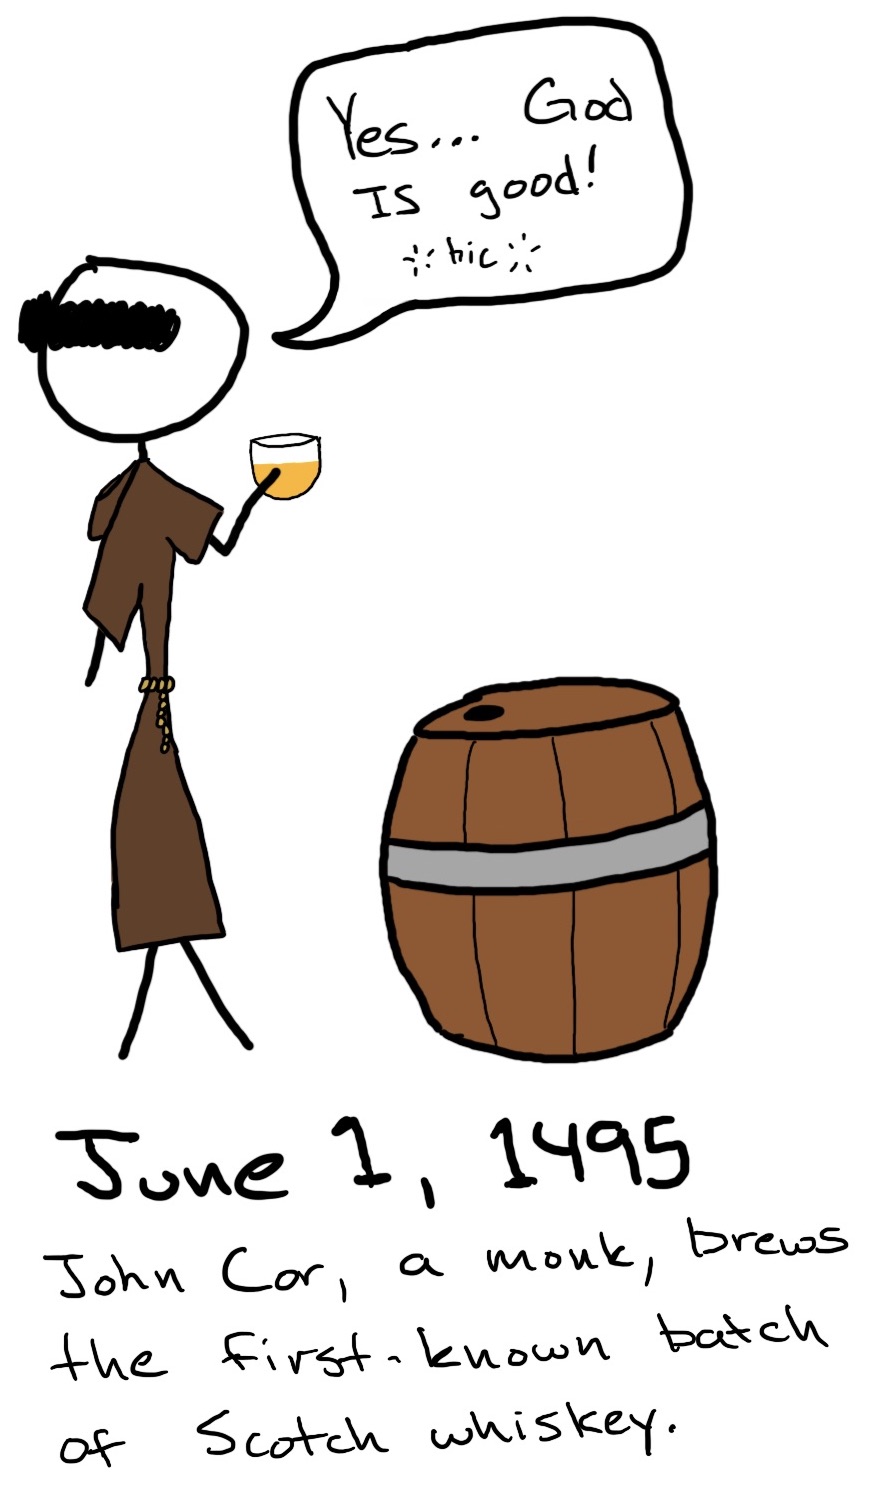 Yes... God
IS good!
hic
June 1, 1495
John Cor, a monk, brews
the first-known batch
of Scotch whiskey.